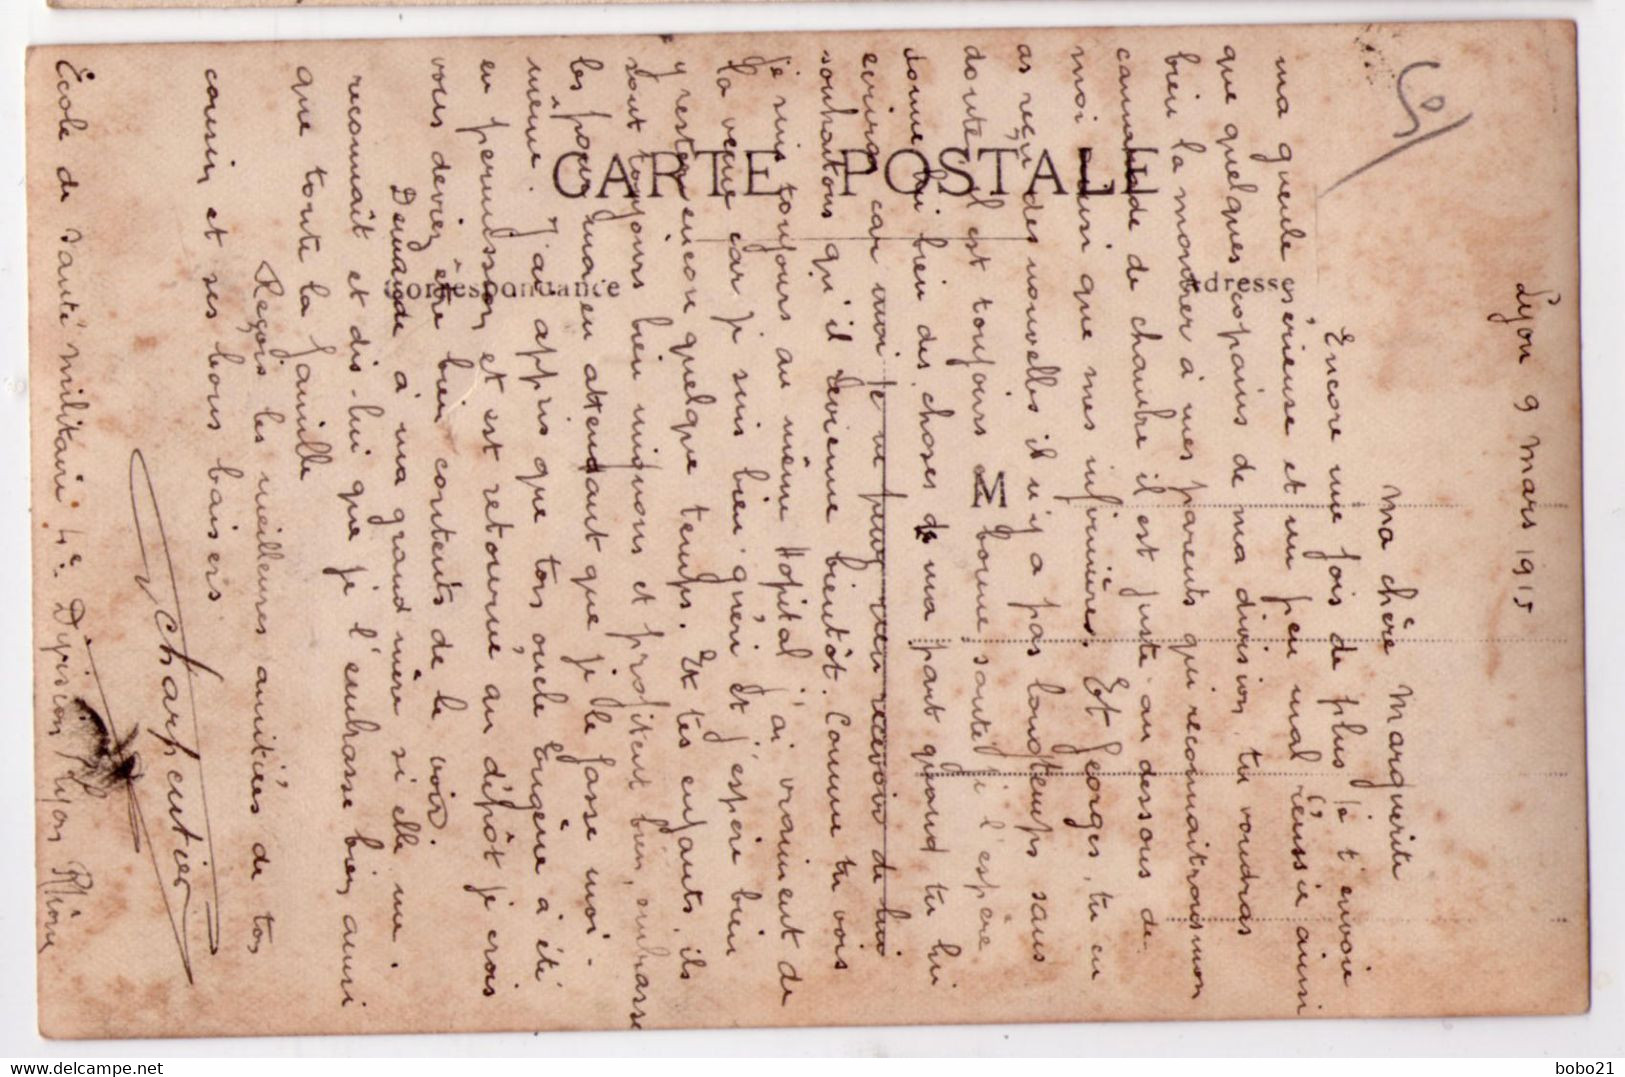 CARTE POSTALE
Correspondance
Adresse
M
Lyon 9 Mars 1915
Ma chère Marguerite
Encore une fois de plus je t'envoie
ma gueule sérieuse et un peu mal réussie ainsi
que quelques copains de ma division tu voudras
bien la montrer à mes parents qui reconnaitrons mon
camarade de chambre il est juste au dessous de
moi ainsi que mes infirmières. Et Georges, tu en
as reçu des nouvelles il n'y a pas longtemps sans
doute, il est toujours en bonne santé j' l'espère
donne lui bien des choses de ma part quand tu lui
ecriras car moi je ne peux rien recevoir de lui
souhaitons qu'il revienne bientôt. Comme tu vois
je suis toujours au même Hôpital j'ai vraiment de
la veine car je suis bien guéri et j'espère bien
y rester encore quelque temps. Et tes enfants, ils
sont toujours bien mignons et profitent bien, embrasse
les pour moi en attendant que je le fasse moi-
même. J'ai appris que ton oncle Eugène a été
en permission et est retourné au dépôt je crois
vous deviez être bien contents de le voir.
Demande à ma grand mère si elle me
reconnaît et dis-lui que je l'embrasse bien ainsi
que toute la famille
Reçois les meilleures amitiées de ton
cousin et ses bons baisers
Charpentier
Ecole de Santé militaire 4e Division Lyon Rhône
bobo21